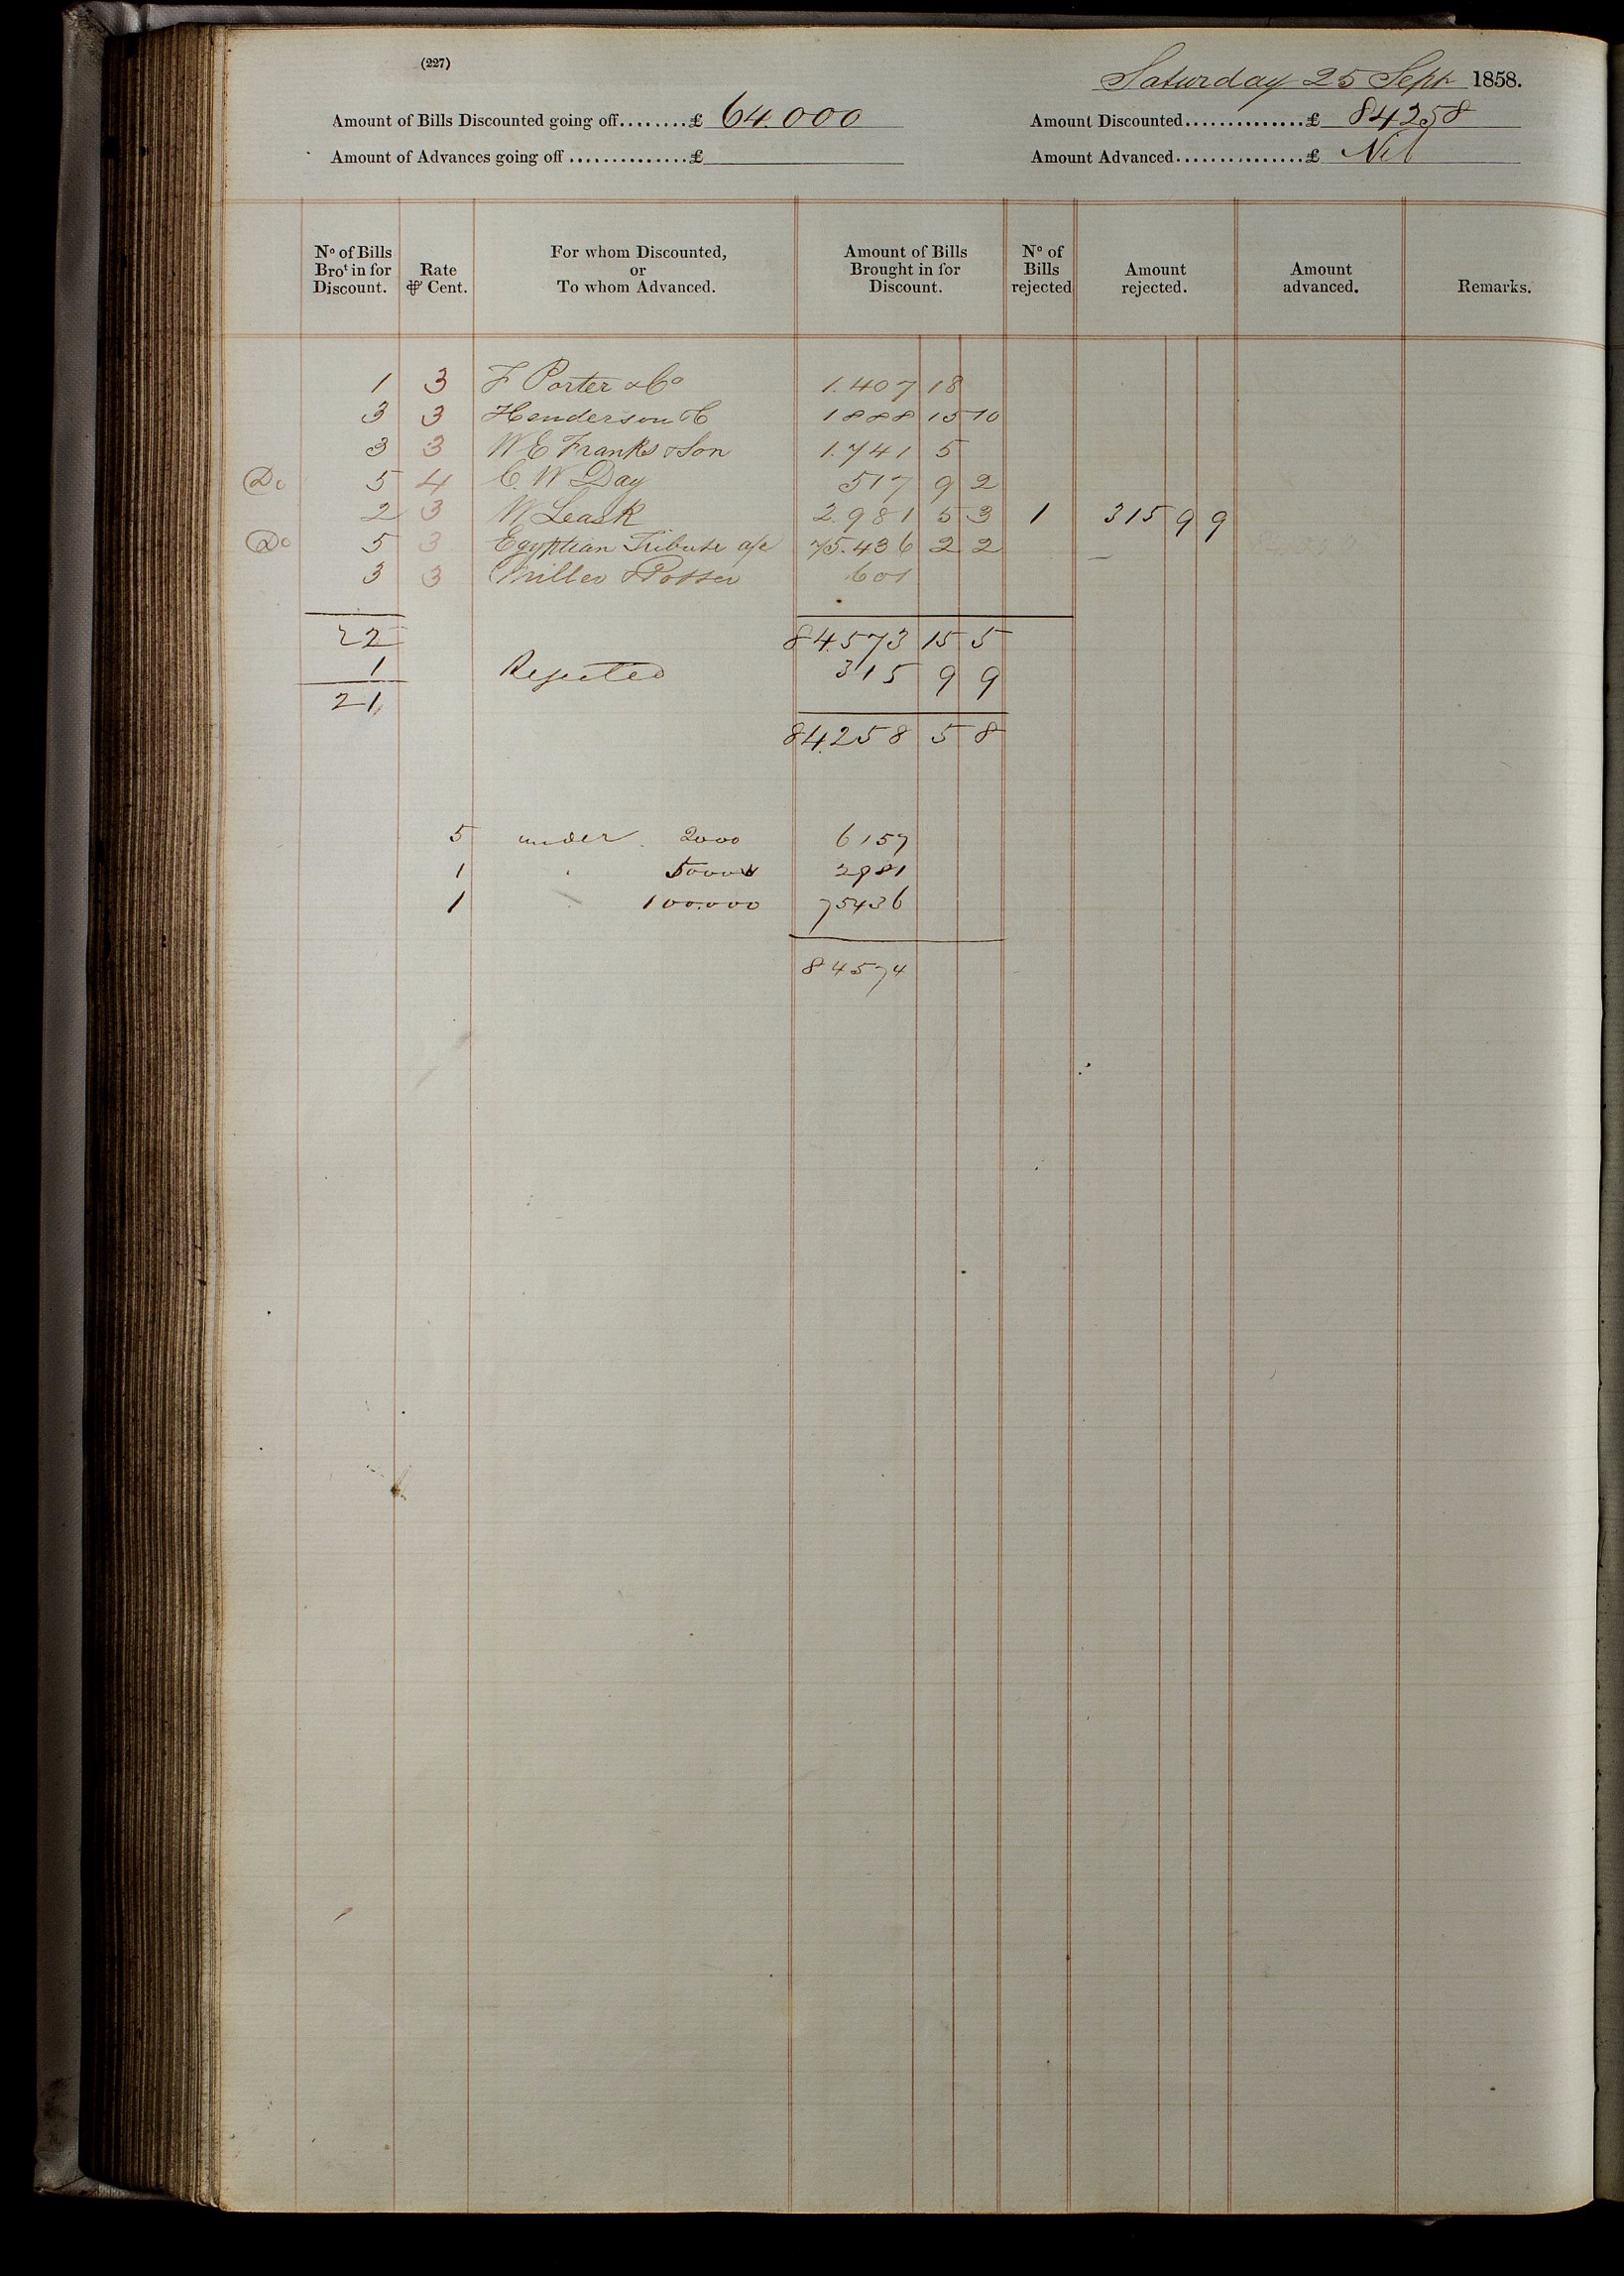 (227)
Saturday 25 Sept 1858.
Amount of Bills Discounted going off........£ 64.000 Amount Discounted..............£ 84258
Amount of Advances going off ..............£ Amount Advanced...............£ Nil
No of Bills Brot in for Discount. Rate ⅌ Cent. For whom Discounted, or To whom Advanced. Amount of Bills Brought in for Discount. No of Bills rejected Amount rejected. Amount advanced. Remarks.
1 3 F Porter & Co 1.407 18
3 3 Henderson & C 1888 15 10
3 3 W E Franks & Son 1.741 5
Do 5 4 C. W Day 517 9 2
2 3 W Leask 2.981 5 3 1 315 9 9
Do 5 3 Egyptian Tribute a/c 75.436 2 2 —
3 3 Miller & Potter 601
22 84.573 15 5
1 Rejected 315 9 9
21 84.258 5 8
5 under 2000 6157
1 " 5000 2981
1 " 100.000 75436
84574